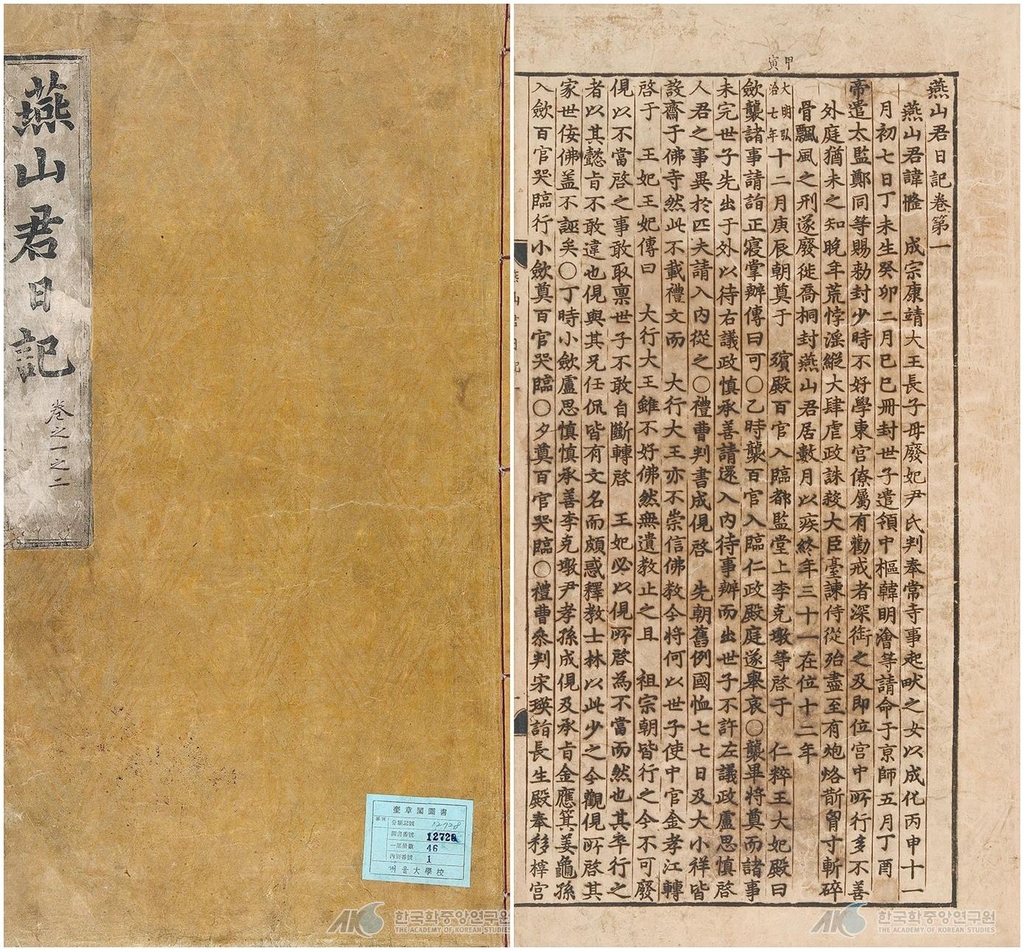 燕山君日記
卷之一之二
奎章閣圖書
分類記號
圖書番號 12728
一部册數 46
內別番號 1
서울大學校
한국학중앙연구원
THE ACADEMY OF KOREAN STUDIES
甲寅
燕山君日記卷第一
燕山君諱㦕 成宗康靖大王長子母廢妃尹氏判奉常寺事起畎之女以成化丙申十一
月初七日丁未生癸卯二月己巳冊封世子遣領中樞韓明澮等請命于京師五月丁酉
帝遣太監鄭同等賜勑封少時不好學東宮僚屬有勸戒者深銜之及即位宮中所行多不善
外庭猶未之知晚年荒悖淫縱大肆虐政誅殺大臣臺諫侍從殆盡至有炮烙斮胷寸斬碎
骨飄風之刑遂廢徙喬桐封燕山君居數月以疾終年三十一在位十二年
大明弘治七年十二月庚辰朝奠于 殯殿百官入臨都監堂上李克墩等啓于 仁粹王大妃殿曰
歛襲諸事請詣正寢掌辦傳曰可○乙時襲百官入臨仁政殿庭遂擧哀○襲畢將奠而諸事
未完世子先出于外以待右議政愼承善請還入內待事辦而出世子不許左議政盧思愼啓
人君之事異於匹夫請入內從之○禮曹判書成俔啓 先朝舊例國恤七七日及大小祥皆
設齋于佛寺然此不載禮文而 大行大王亦不崇信佛教今將何以世子使中官金孝江轉
啓于 王妃王妃傳曰 大行大王雖不好佛然無遺教止之且 祖宗朝皆行之今不可廢
俔以不當啓之事敢取禀世子不敢自斷轉啓 王妃必以俔所啓爲不當而然也其卒行之
者以其懿旨不敢違也俔與其兄任侃皆有文名而頗惑釋教士林以此少之今觀俔所啓其
家世佞佛盖不誣矣○丁時小歛盧思愼愼承善李克墩尹孝孫成俔及承旨金應箕姜龜孫
入歛百官哭臨行小歛奠百官哭臨○夕奠百官哭臨○禮曹叅判宋瑛詣長生殿奉移梓宮
燕山君日記
한국학중앙연구원
THE ACADEMY OF KOREAN STUDIES